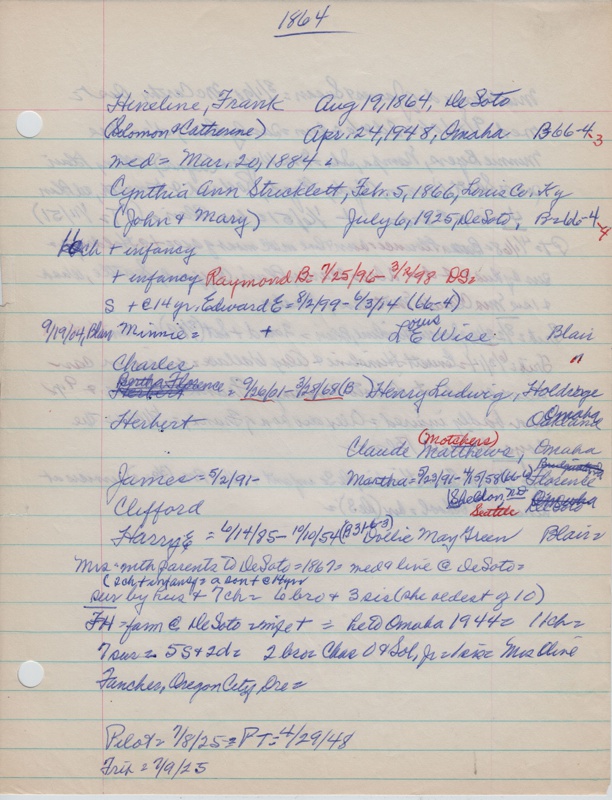 1864
Hineline, Frank Aug 19, 1864, DeSoto
(Solomon & Catherine) Apr. 24, 1948, Omaha B66-4-3
med = Mar. 20, 1884 =
Cynthia Ann Stricklett, Feb. 5, 1866, Lewis Co. Ky
(John & Mary) July 6, 1925, DeSoto, B=66-4-4
ch + infancy
+ infancy Raymond B= 7/25/96- 3/2/98 DS=
S + @ 14 yr. Edward E = 8/2/99- 6/3/14 (66-4)
9/19/04, Blair Minnie = + Louis
L E Wise Blair "
Charles
Bertha Florence = 9/26/01- 3/28/68 (B ) Henry Ludwig, Holdrege
Herbert Omaha Oakland
(Motchers)
Claude Matthews, Omaha
James = 5/2/91- Martha = 5/23/91- 4/15/58 (66- ) Florence
Clifford (Sheldon, Seattle
Harry E = 6/14/85- 10/10/54 (B316-3) Dollie May Green Blair=
Mrs = with parents to DeSoto = 1867 = med & live @ DeSoto =
(2ch + infancy = a son + @ 14yr
sur by hus + 7ch = 6 bro + 3 sis (she oldest of 10)
FH = farm @ DeSoto = = he to Omaha 1944 = 11ch =
7 sur = 5S & 2d = 2 bro = Chas O & Sol, Jr = 1 sis = Mrs Oline
Fancher, Oregon City, Ore =
Pilot = 7/8/25 = PT = 4/29/48
Trib = 7/9/25